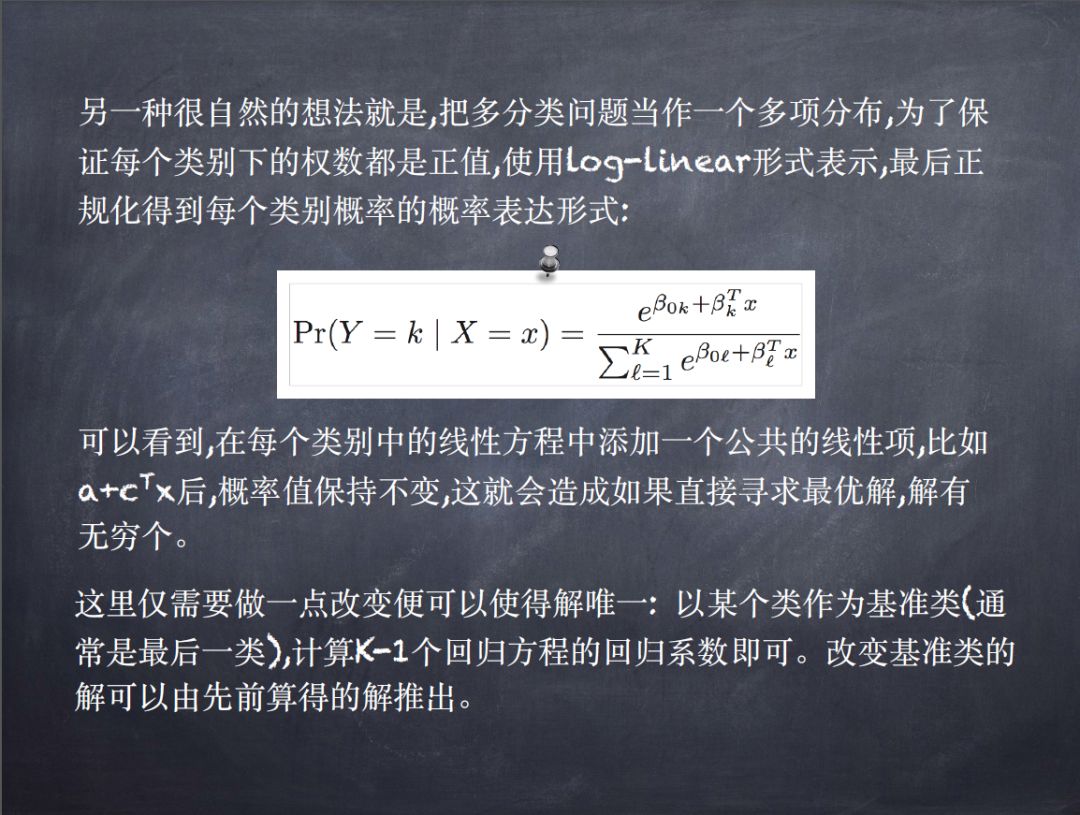 另一种很自然的想法就是,把多分类问题当作一个多项分布,为了保
证每个类别下的权数都是正值,使用log-linear形式表示,最后正
规化得到每个类别概率的概率表达形式:
Pr(Y = k | X = x) = \frac{e^{\beta_{0k}+\beta_k^T x}}{\sum_{\ell=1}^{K} e^{\beta_{0\ell}+\beta_\ell^T x}}
可以看到,在每个类别中的线性方程中添加一个公共的线性项,比如
a+cᵀx后,概率值保持不变,这就会造成如果直接寻求最优解,解有
无穷个。
这里仅需要做一点改变便可以使得解唯一: 以某个类作为基准类(通
常是最后一类),计算K-1个回归方程的回归系数即可。改变基准类的
解可以由先前算得的解推出。